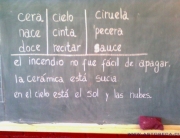 cera cielo ciruela
nace cinta pecera
doce recitar sauce
el incendio no fue fácil de apagar.
la cerámica está sucia
en el cielo está el sol y las nubes.